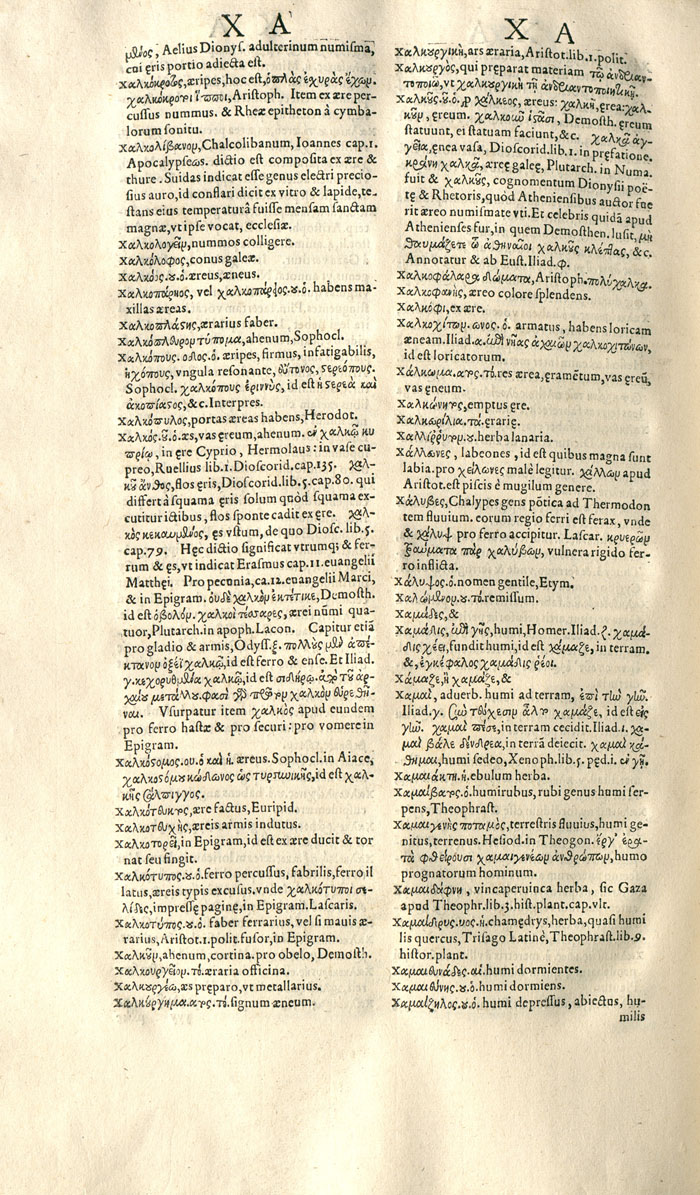 Χ Α
μένος, Aelius Dionys. adulterinum numisma,
cui ęris portio adiecta est.
Χαλκόκροτος, æripes, hoc est, ὁπλὰς ἐχυρὰς ἔχωμ.
χαλκόκροτοι ἵπποι, Aristoph. Item ex ære per-
cussus nummus. & Rheæ epitheton à cymba-
lorum sonitu.
Χαλκολίβανομ, Chalcolibanum, Ioannes cap.1.
Apocalypseωs. dictio est composita ex ære &
thure. Suidas indicat esse genus electri precio-
sius auro, id conflari dicit ex vitro & lapide, te-
stans eius temperaturâ fuisse mensam sanctam
magnæ, vt ipse vocat, ecclesiæ.
Χαλκολογεῖμ, nummos colligere.
Χαλκόλοφος, conus galeæ.
Χαλκόυς.ȣ.ὁ. æreus, æneus.
Χαλκοπάρηος, vel χαλκοπάρῃος.ȣ.ὁ. habens ma-
xillas æreas.
Χαλκοπλάστης, ærarius faber.
ahenum, Sophocl.
Χαλκόπους.οδος.ὁ. æripes, firmus, infatigabilis,
ἠχόπους, vngula resonante, εὔτονος, στερεόπους.
Sophocl. χαλκόπους ἐριννὺς, id est ἡ στερεὰ καὶ
ἀκοπίαστος, &c. Interpres.
Χαλκόπυλος, portas æreas habens, Herodot.
Χαλκός.ȣ.ὁ. æs, vas ęreum, ahenum. ἐν χαλκῷ κυ
πρίῳ, in ęre Cyprio, Hermolaus: in vase cu-
preo, Ruellius lib.1. Dioscorid. cap.135. χαλ-
κȣ̂ ἄνθος, flos ęris, Dioscorid. lib.5. cap.80. qui
differt à squama ęris solum quòd squama ex-
cutitur ictibus, flos sponte cadit ex ęre. χαλ-
κὸς κεκαυμένος, ęs vstum, de quo Diosc. lib.5.
cap.79. Hęc dictio significat vtrumq; & fer-
rum & ęs, vt indicat Erasmus cap.11. euangelii
Matthęi. Pro pecunia, ca.12. euangelii Marci,
& in Epigram. οὐδὲ χαλκὸμ ἐκτέτικε, Demosth.
id est ὀβολόμ. χαλκοὶ τέσσαρες, ærei nūmi qua-
tuor, Plutarch. in apoph. Lacon. Capitur etiā
pro gladio & armis, Odyss.ξ. πολλὺς μὲν ἀπέ-
κτανομ ὀξέϊ χαλκῷ, id est ferro & ense. Et Iliad.
γ. κεχορυθμένα χαλκῷ, id est σιδήρῳ. ἀπὸ τȣ̂ ἀρ-
χαίȣ μετάλλȣ. φασὶ γὰρ πρῶτομ χαλκὸμ εὑρεθῆ-
ναι. Vsurpatur item χαλκὸς apud eundem
pro ferro hastæ & pro securi: pro vomere in
Epigram.
Χαλκόστομος.ου.ὁ καὶ ἡ. æreus. Sophocl. in Aiace,
χαλκοστόμȣ κώδωνος ὡς τυρσηνικῆς, id est χαλ-
κῆς σάλπιγγος.
Χαλκότευκτος, ære factus, Euripid.
Χαλκοτευχὴς, æreis armis indutus.
Χαλκοτορεῖ, in Epigram, id est ex ære ducit & tor
nat seu fingit.
Χαλκότυπος.ȣ.ὁ. ferro percussus, fabrilis, ferro il
latus, æreis typis excusus. vnde χαλκότυποι σε-
λίδες, impressę paginę, in Epigram. Lascaris.
Χαλκοτύπος.ȣ.ὁ. faber ferrarius, vel si mauis æ-
rarius, Aristot.1. polit. fusor, in Epigram.
Χαλκȣ̂μ, ahenum, cortina. pro obelo, Demosth.
Χαλκουργεῖομ.τὸ. æraria officina.
Χαλκȣργέω, æs præparo, vt metallarius.
Χαλκȣ́ργημα.ατος.τὸ. signum æneum.
Χ Α
Χαλκȣργικὴ, ars æraria, Aristot. lib.1. polit.
Χαλκȣργὸς, qui præparat materiam τῷ ἀνδριαν-
τοποιῷ, vt χαλκȣργικὴ τῇ ἀνδριαντοποιητικῇ.
Χαλκȣ̂ς.ȣ̂.ὁ. pro χάλκεος, æreus: χαλκῆ, ęrea: χαλ-
κȣ̂μ, ęreum. χαλκοῦμ ἱστᾶσι, Demosth. ęreum
statuunt, ei statuam faciunt, &c. χαλκᾶ ἀγ-
γεῖα, ęnea vasa, Dioscorid. lib.1. in pręfatione.
κράνη χαλκᾶ, æreę galeę, Plutarch. in Numa.
fuit & χαλκȣ̂ς, cognomentum Dionysii poë-
tę & Rhetoris, quòd Atheniensibus auctor fue
rit æreo numismate vti. Et celebris quidā apud
Athenienses fur, in quem Demosthen. lusit, μὴ
θαυμάζετε ὦ ἀθηναῖοι χαλκȣ̂ς κλέπτας, &c.
Annotatur & ab Eust. Iliad.φ.
Χαλκοφάλαρα δώματα, Aristoph. πολύχαλκα.
Χαλκοφανὴς, æreo colore splendens.
Χαλκόφι, ex ære.
Χαλκοχίτωμ.ωνος.ὁ. armatus, habens loricam
æneam. Iliad.α. ἐπὶ νῆας ἀχαιῶμ χαλκοχιτώνωμ,
id est loricatorum.
Χάλκωμα.ατος.τὸ. res ærea, ęramētum, vas ęreū,
vas ęneum.
Χαλκώνητος, emptus ęre.
Χαλκωρίλια.τὰ. ęrarię.
ȣ. herba lanaria.
Χάλλωνες, labeones, id est quibus magna sunt
labia. pro χείλωνες malè legitur. χάλλωμ apud
Aristot. est piscis è mugilum genere.
Χάλυβες, Chalypes gens pōtica ad Thermodon
tem fluuium. eorum regio ferri est ferax, vnde
& χάλυψ pro ferro accipitur. Lascar. κρυερῶμ
τραύματα παρὰ χαλύβωμ, vulnera rigido fer-
ro inflicta.
Χάλυψος.ὁ. nomen gentile, Etym.
Χαλώμενομ.ȣ.τὸ. remissum.
Χαμάδες, &
Χαμάδις, ἐπὶ γῆς, humi, Homer. Iliad.ζ. χαμά-
δις χέει, fundit humi, id est χάμαζε, in terram.
&, ἐγκέφαλος χαμάδις ῥέοι.
Χάμαζε, ἢ χαμάζε, &
Χαμαὶ, aduerb. humi ad terram, ἐπὶ τὴν γῆν.
Iliad.γ. σὺν τεύχεσιμ ἆλτο χαμᾶζε, id est εἰς
γῆν. χαμαὶ πέσε, in terram cecidit. Iliad.1. χα-
μαὶ βάλε δένδρεα, in terrā deiecit. χαμαὶ κά-
θημαι, humi sedeo, Xenoph. lib.5. pęd.i. ἐν γῇ.
Χαμαιάκτη.ἡ. ebulum herba.
Χαμαίβατος.ὁ. humirubus, rubi genus humi ser-
pens, Theophrast.
Χαμαιγενὴς ποταμὸς, terrestris fluuius, humi ge-
nitus, terrenus. Hesiod. in Theogon. ἔργ' ἐρα-
τὰ φθείρουσι χαμαιγενέωμ ἀνθρώπωμ, humo
prognatorum hominum.
Χαμαιδάφνη, vincaperuinca herba, sic Gaza
apud Theophr. lib.3. hist. plant. cap. vlt.
Χαμαίδρυς.υος.ἡ. chamędrys, herba, quasi humi
lis quercus, Trisago Latinè, Theophrast. lib.9.
histor. plant.
Χαμαιευνάδες.αἱ. humi dormientes.
Χαμαιεύνης.ȣ.ὁ. humi dormiens.
Χαμαίζηλος.ȣ.ὁ. humi depressus, abiectus, hu-
milis